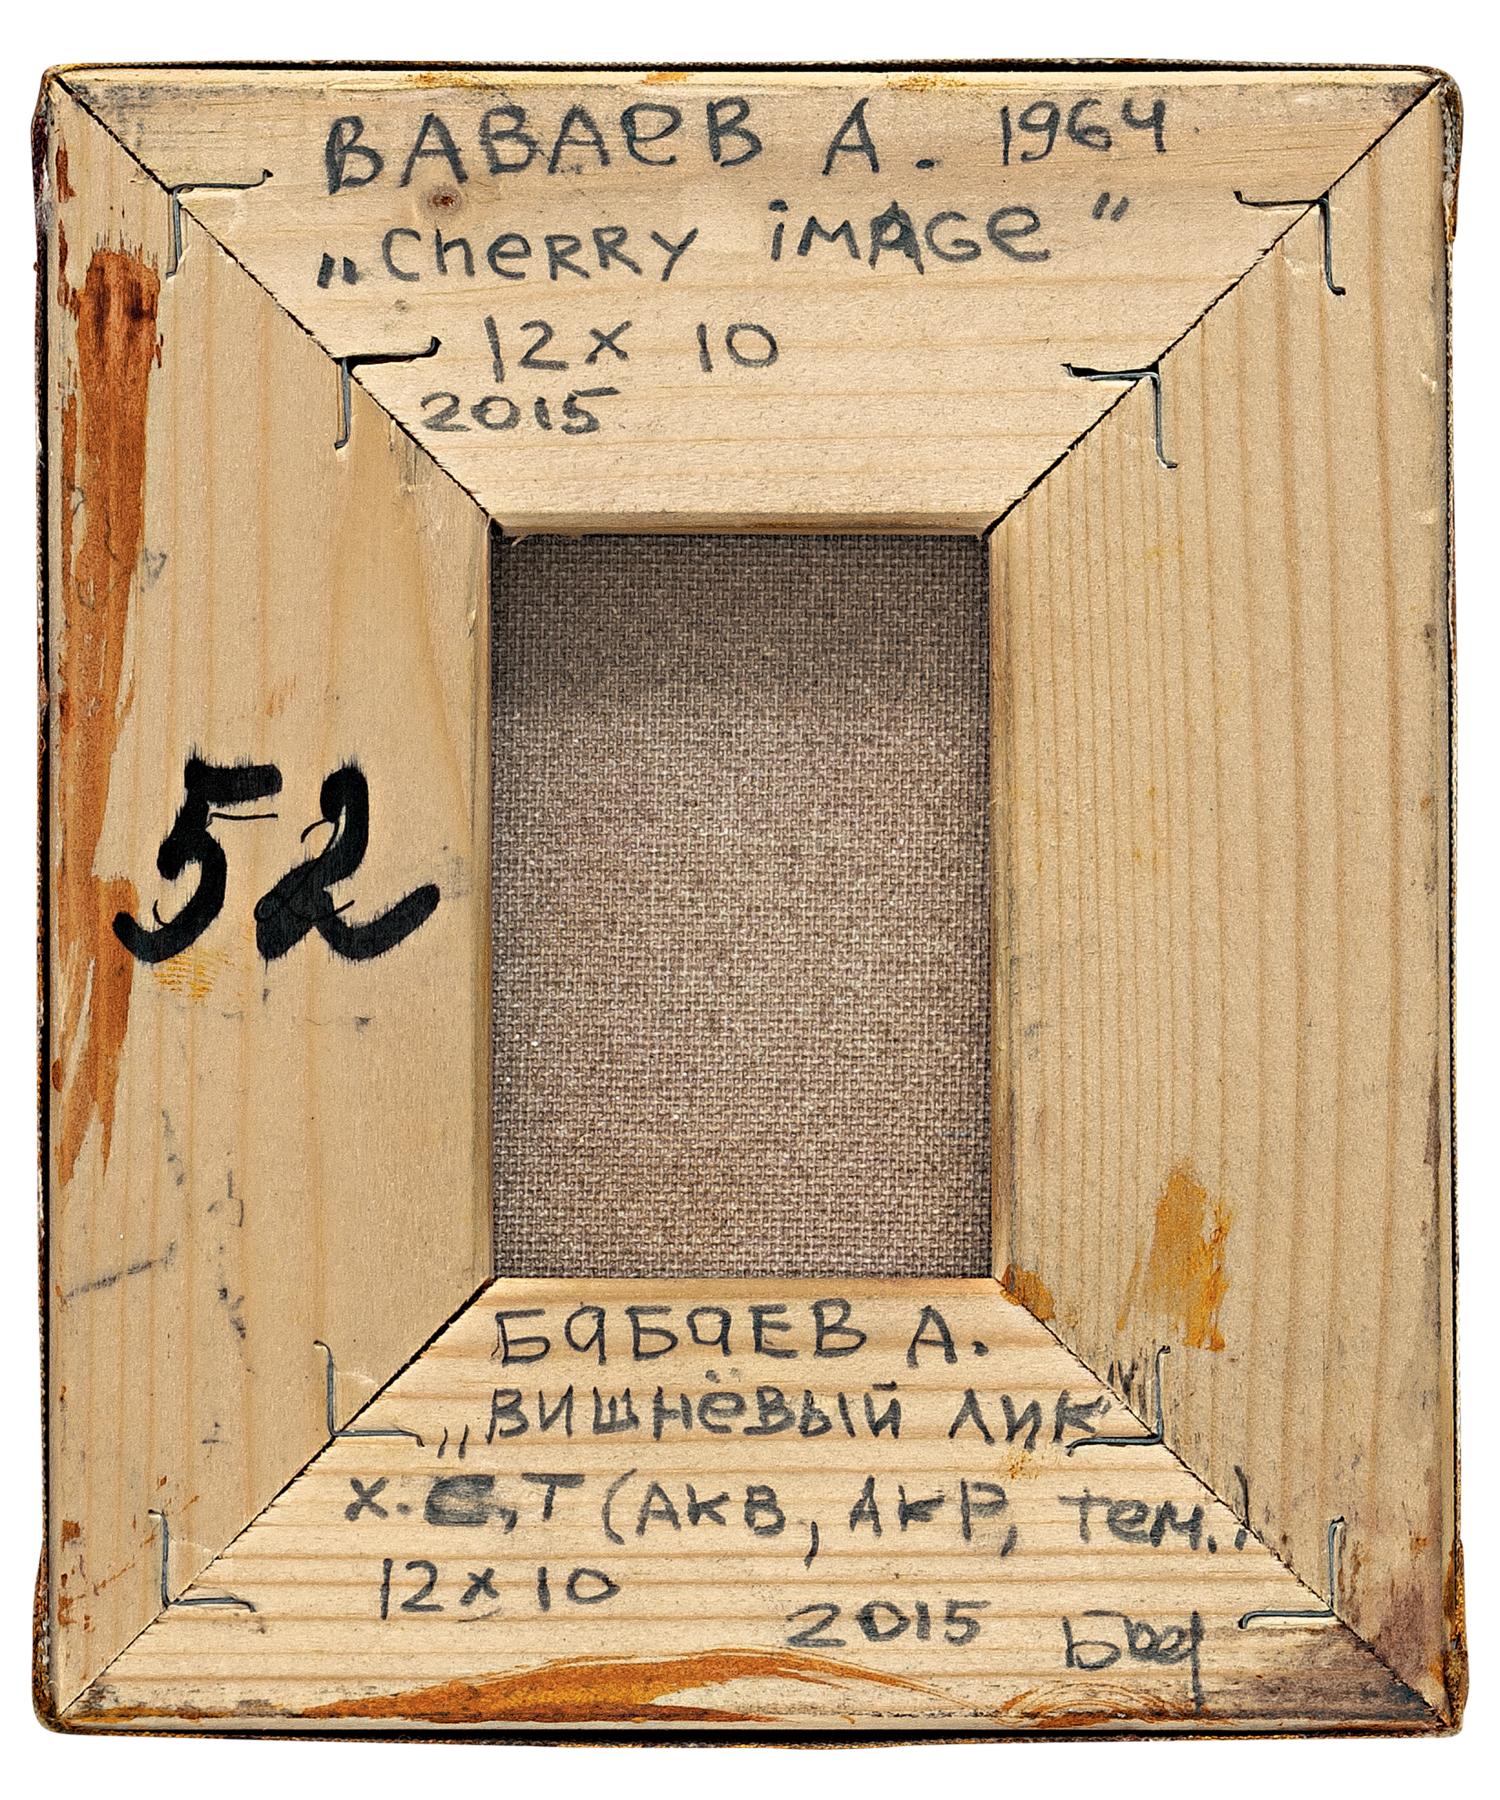 BABAeB A. 1964
„CheRRY iMAGe"
12x 10
2015
52
БАБАЕВ А.
„ВИШНЁВЫЙ ЛИК"
Х. С,Т (АКВ, АКР, тем.)
12x10
2015